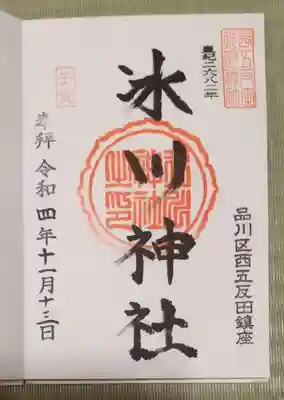 皇紀二六八二年
品川区西五反田鎮座
氷川神社
奉拝 令和四年十一月十三日